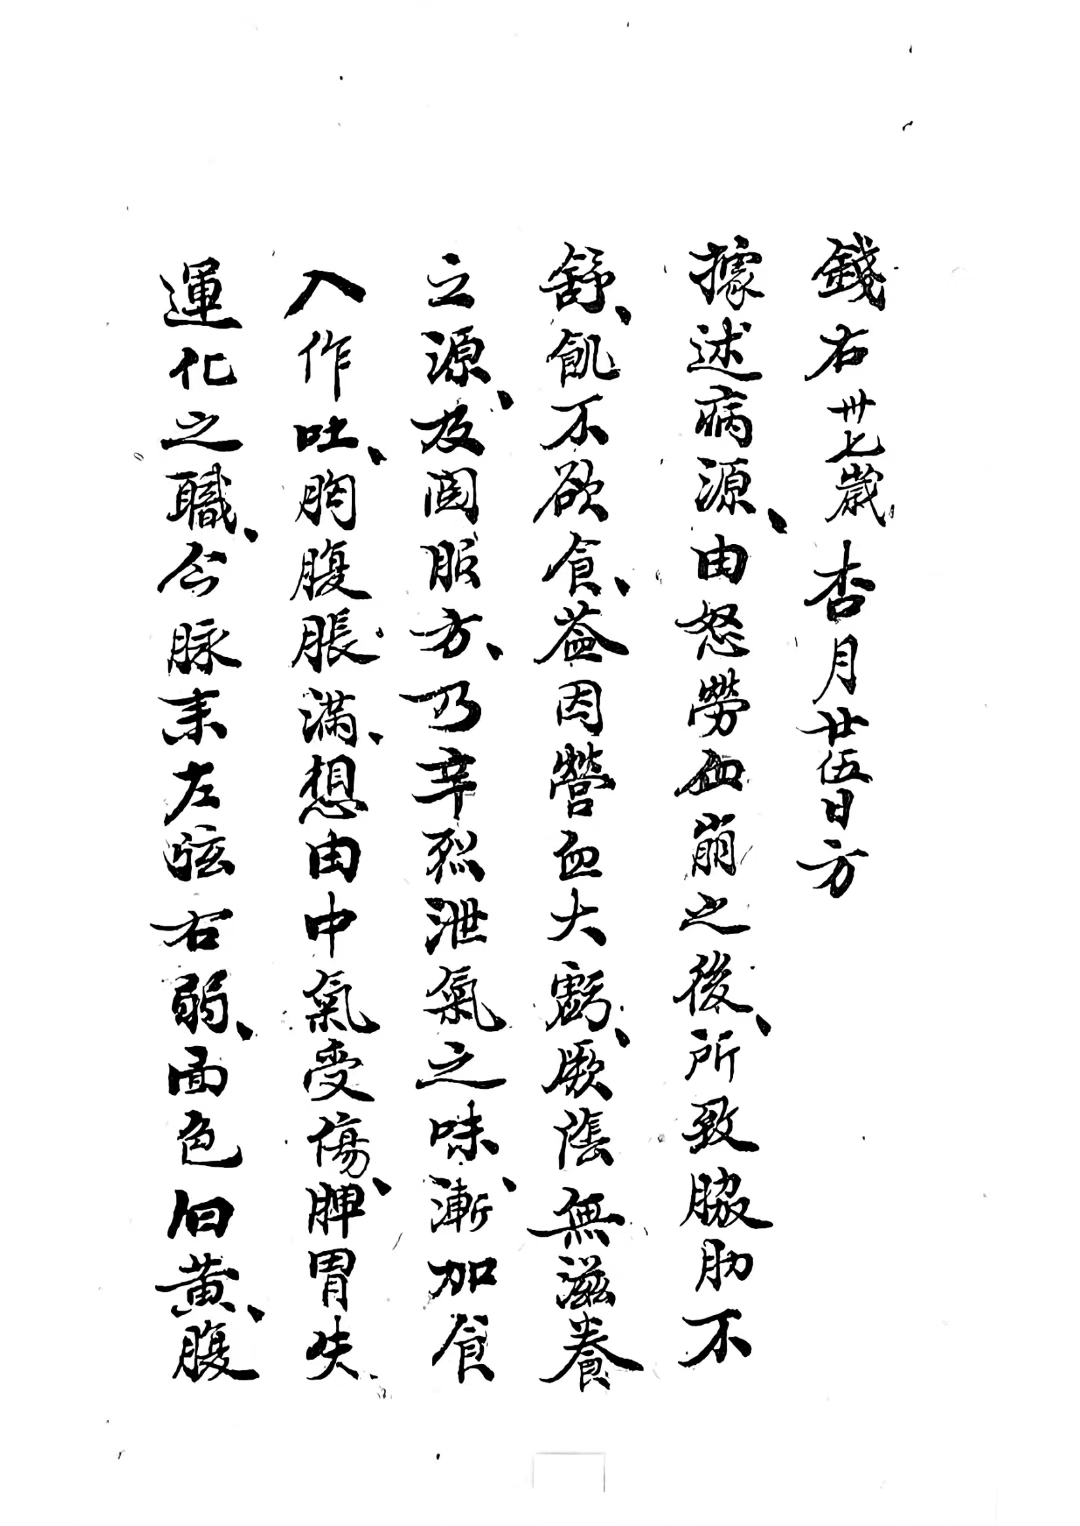 錢右卅七歲杏月廿伍日方
據述病源、由怒勞血崩之後、所致脇肋不
舒、飢不欲食、益因營血大虧、厥陰無滋養
之源、及閱服方、乃辛烈泄氣之味、漸加食
入作吐、胸腹脹滿、想由中氣受傷、脾胃失
運化之職、今脉来左弦右弱、面色旧黄、腹